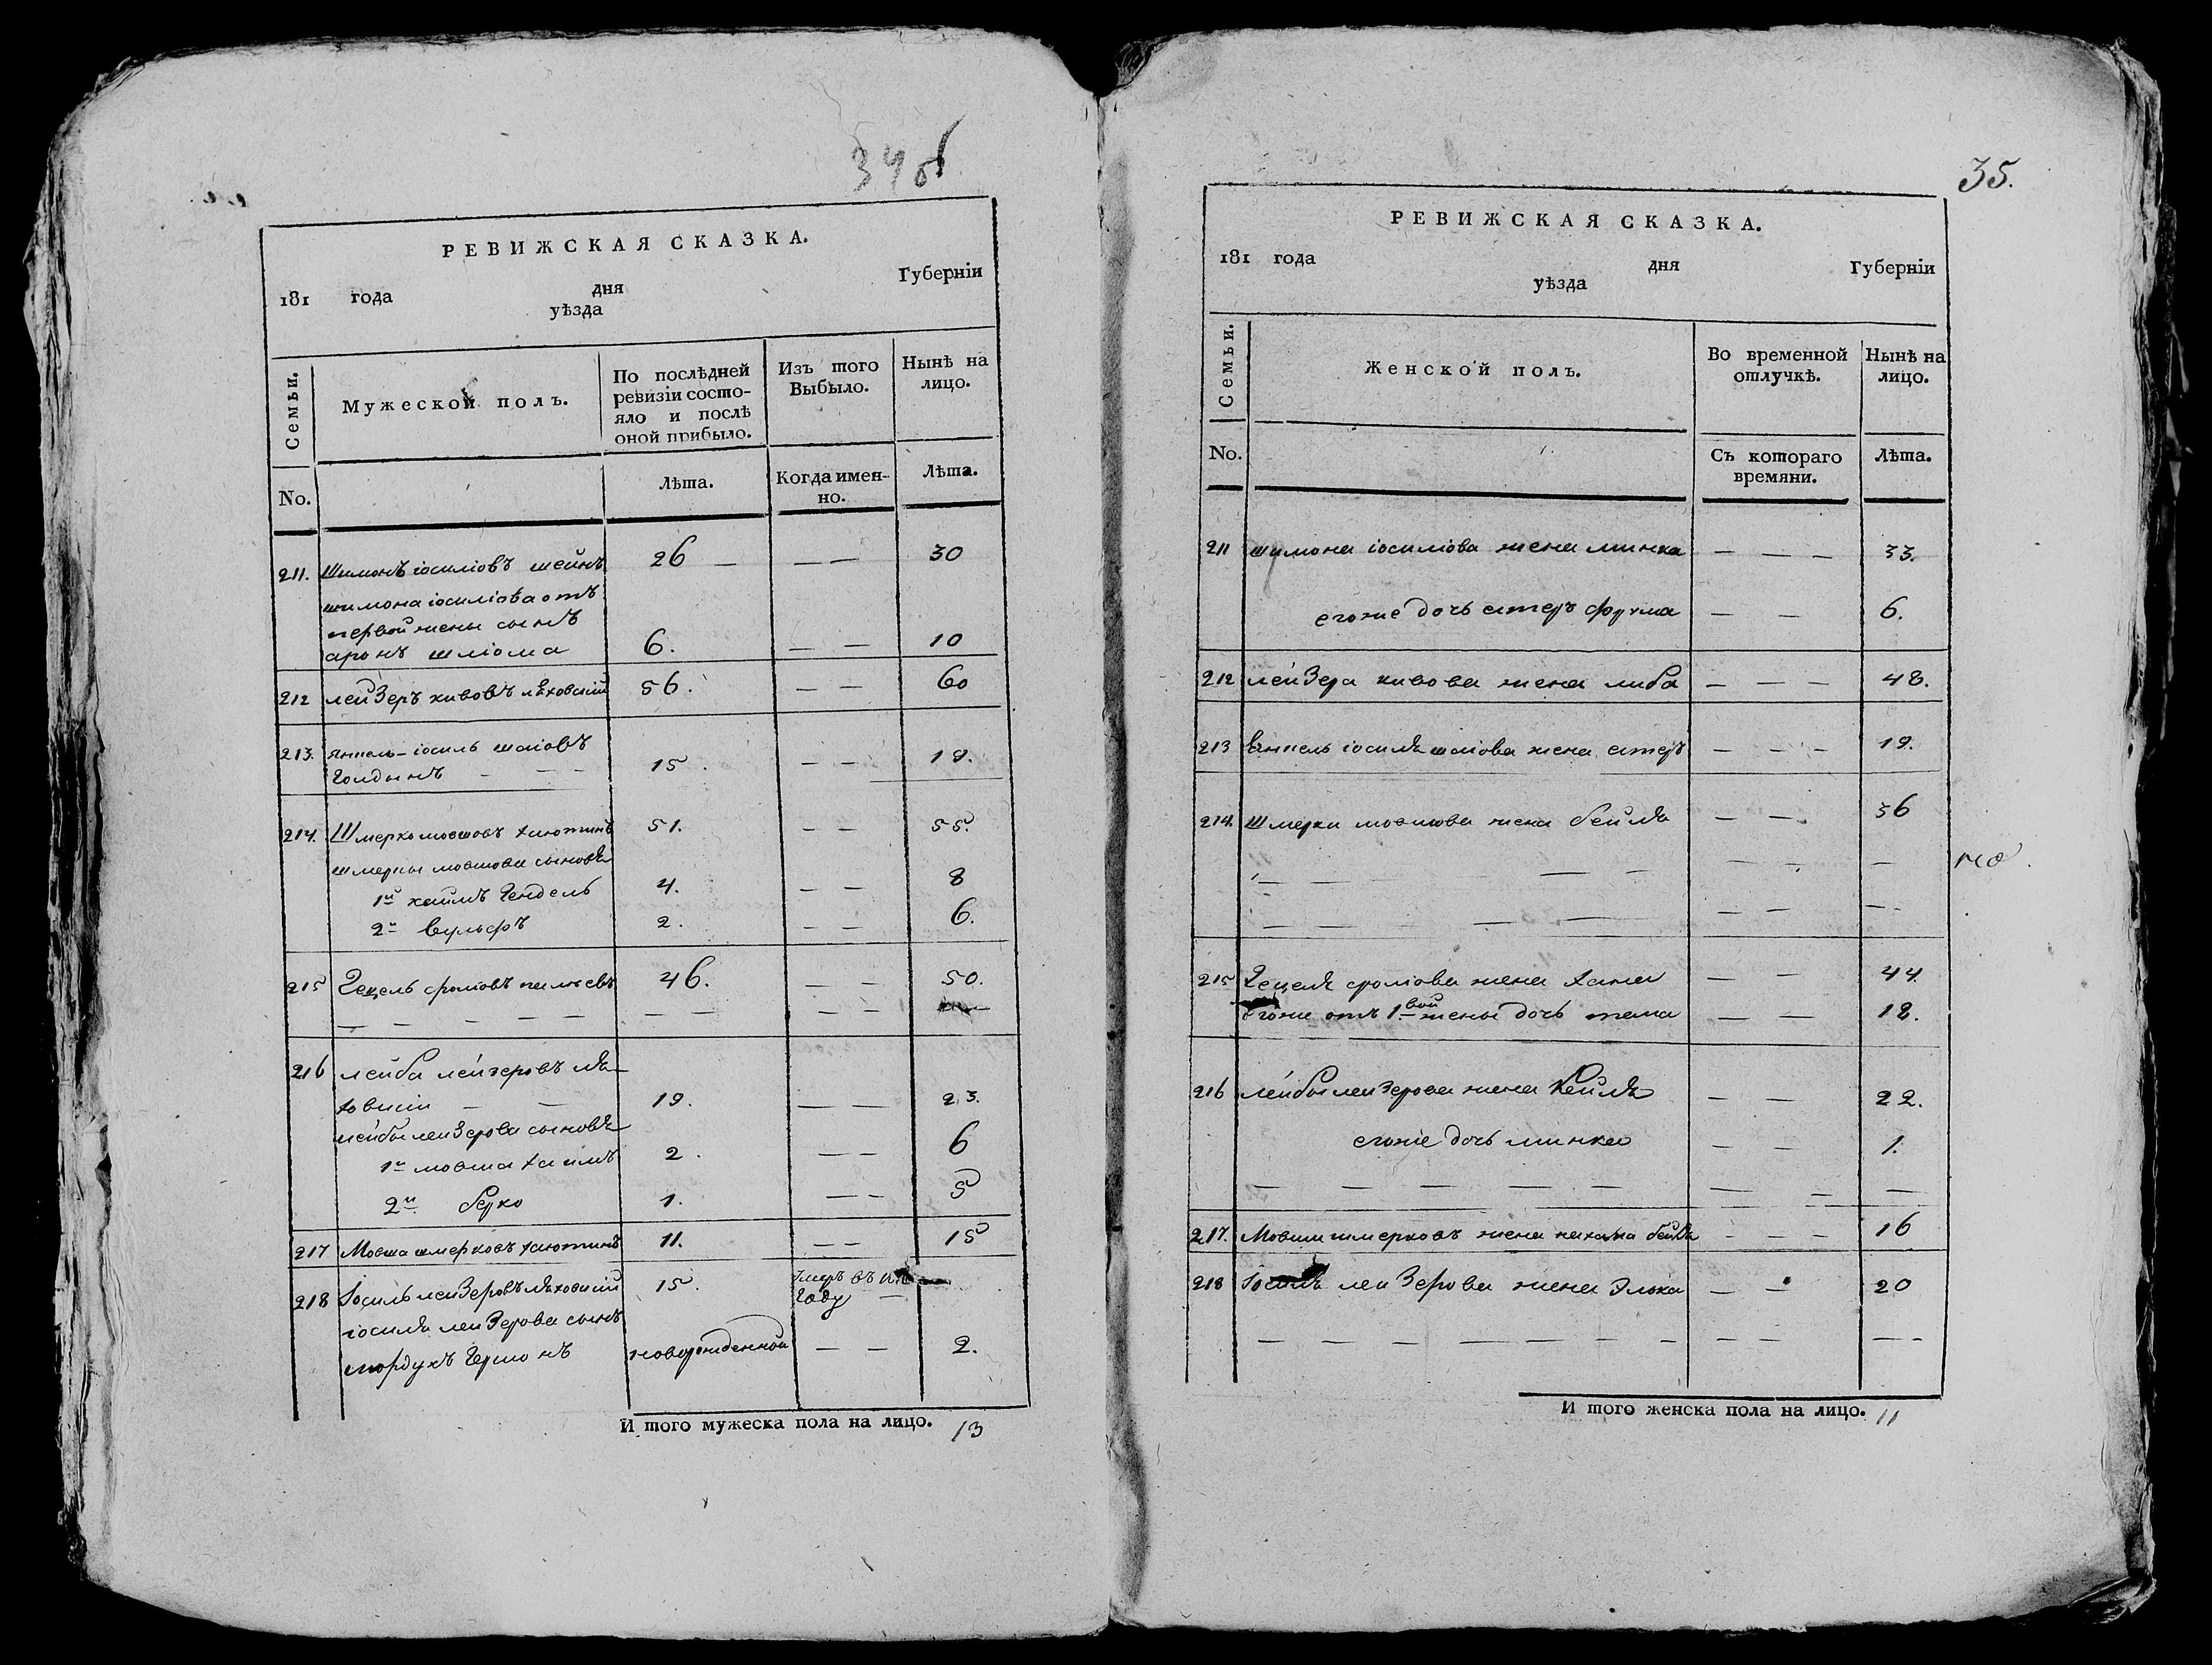 34об
РЕВИЖСКАЯ СКАЗКА.
181 года дня Губерніи
уѣзда
Семьи. Мужеской полъ. По послѣдней ревизіи состояло и послѣ оной прибыло. Изъ того Выбыло. Нынѣ на лицо.
No. Лѣта. Когда именно. Лѣта.
211. Шимонъ іосиліовъ шейнъ 26 — — — 30
шимона іосиліова отъ
первой жены сынъ
аронъ шліома 6. — — 10
212 лейзеръ кивовъ ляховскій 56. — — 60
213. янкель-іосиль шоловъ
Голдынъ — — — 15. — — 19.
214. Шмерко мовшовъ хаютинъ 51. — — 55.
шмерки мовшова сыновя
1й хаимъ Гендель 4. — — 8
2й вульфъ 2. — — 6.
215 Гецель сроліовъ 46. — — 50.
— — — — — — — — —
216 лейба лейзеровъ ля-
ховскій — — 19. — — 23.
лейбы лейзерова сыновя
1й мовша хаимъ 2. — — 6
2й берко 1. — — 5
217 Мовша шмерковъ хаютинъ 11. — — 15
218 Іосиль лейзеровъ ляховскій 15. умеръ въ
Году —
іосиля лейзерова сынъ
мордухъ Гершонъ новорожденной — — 2.
И того мужеска пола на лицо. 13
35.
РЕВИЖСКАЯ СКАЗКА.
181 года дня Губерніи
уѣзда
Семьи. Женской полъ. Во временной отлучкѣ. Нынѣ на лицо.
No. Съ котораго времяни. Лѣта.
211 шимона іосиліова жена минка — — — 33.
егоже дочь естеръ фрума — — 6.
212 лейзера кивова жена либа — — — 48.
213 янкель іосиля шолова жена естеръ — — — 19.
214. Шмерки мовшова жена бейля — — 36
— — — — — — —
— — — — — —
215 Гецеля сроліова жена хана — — 44.
егоже отъ 1вой жены дочь тема — — 18.
216 лейбы лейзерова жена Кейля — — 22.
егоже дочь минка — — 1.
— — — — — — — —
217. Мовши шмерковъ жена нахама бейля — — — 16
218 Іосиля лейзерова жена Элька — — 20
— — — — — — — — — —
И того женска пола на лицо. 11